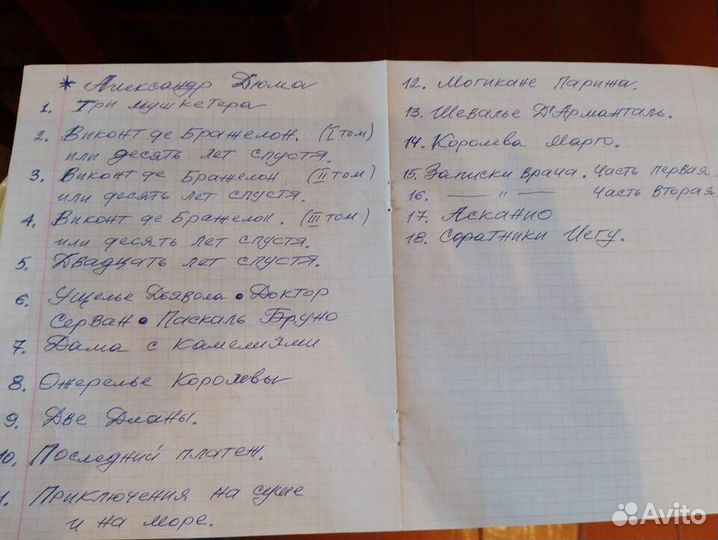 * Александр Дюма
1. Три мушкетера
2. Виконт де Бражелон. (I том)
или десять лет спустя.
3. Виконт де Бражелон. (II том)
или десять лет спустя.
4. Виконт де Бражелон. (III том)
или десять лет спустя.
5. Двадцать лет спустя.
6. Ущелье Дьявола • Доктор
Серван • Паскаль Бруно
7. Дама с камелиями
8. Ожерелье Королевы
9. Две Дианы.
10. Последний платеж.
1. Приключения на суше
и на море.
12. Могикане Парижа.
13. Шевалье Д'Арманталь.
14. Королева Марго.
15. Записки врача. Часть первая.
16. —— " —— Часть вторая.
17. Асканио
18. Соратники Иегу.
Avito